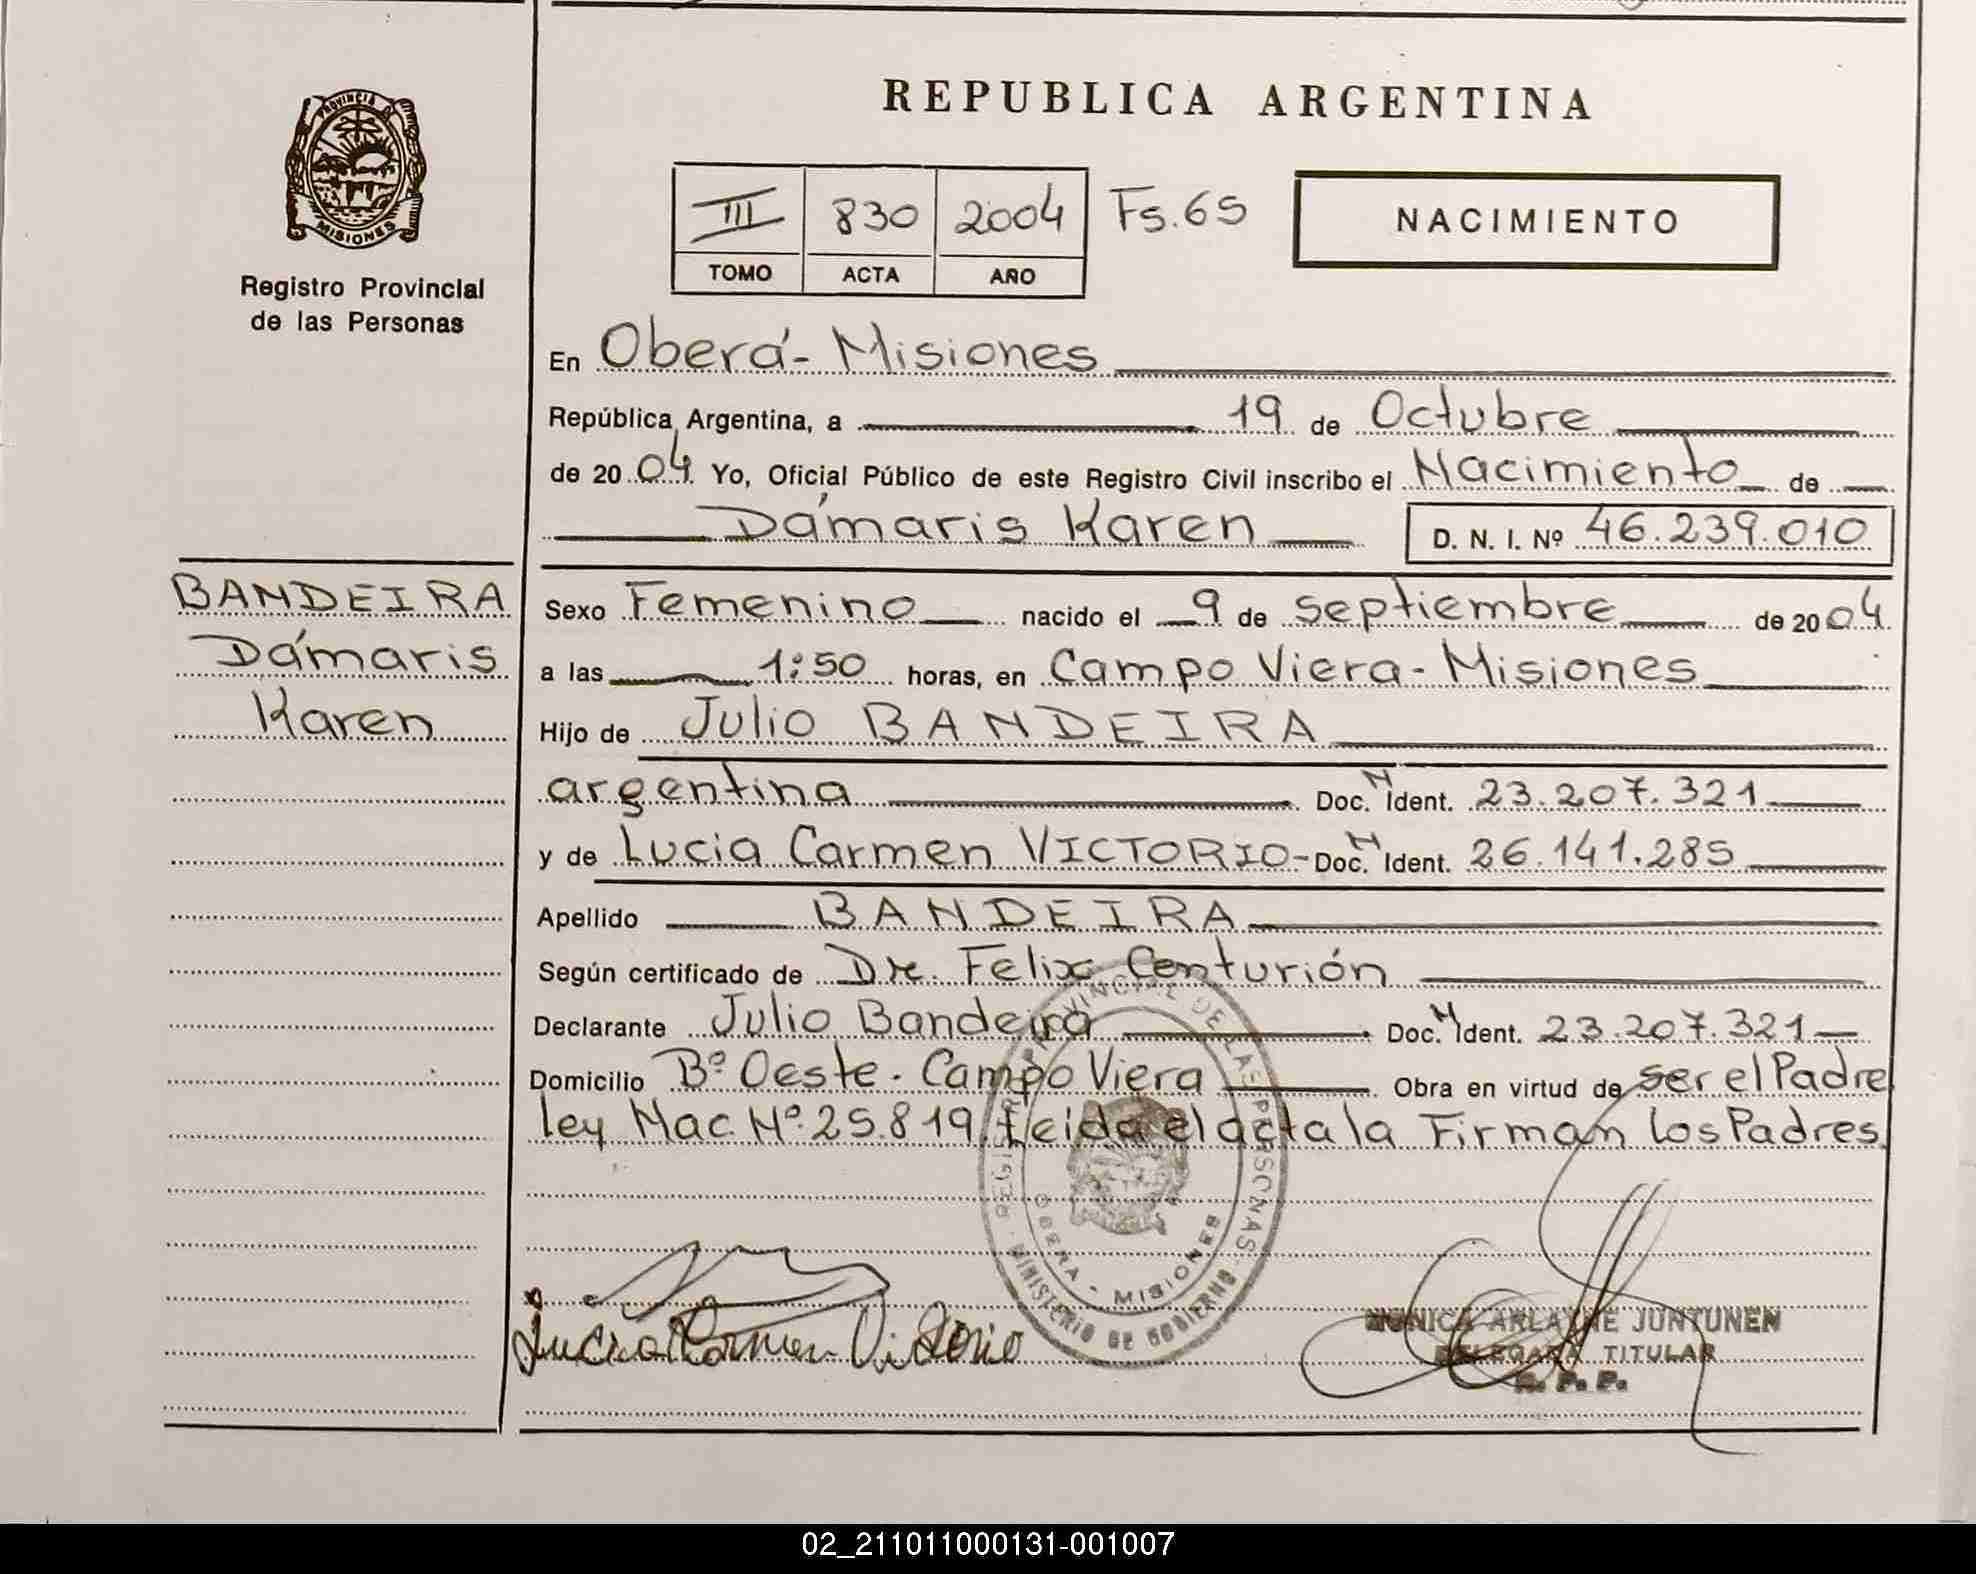 REPUBLICA ARGENTINA
PROVINCIA D
MISIONES
Registro Provincial
de las Personas
III 830 2004 Fs. 65
TOMO ACTA AÑO
NACIMIENTO
En Oberá - Misiones
República Argentina, a 19 de Octubre
de 20 04 Yo, Oficial Público de este Registro Civil inscribo el Nacimiento de
Dámaris Karen D. N. I. Nº 46.239.010
BANDEIRA
Dámaris
Karen
Sexo Femenino nacido el 9 de septiembre de 20 04
a las 1:50 horas, en Campo Viera - Misiones
Hijo de Julio BANDEIRA
argentina Doc. N Ident. 23.207.321
y de Lucia Carmen VICTORIO - Doc. N Ident. 26.141.285
Apellido BANDEIRA
Según certificado de Dr. Felix Centurión
Declarante Julio Bandeira Doc. N Ident. 23.207.321
Domicilio Bº Oeste. Campo Viera Obra en virtud de ser el Padre
ley Nac. Nº 25.819 / Leida el acta la Firman los Padres
PROVINCIAL DE LAS PERSONAS
MINISTERIO DE GOBIERNO
OBERA - MISIONES
Lucia Carmen Victorio
MONICA ARLAYNE JUNTUNEN
DELEGADA TITULAR
R. P. P.
02_211011000131-001007